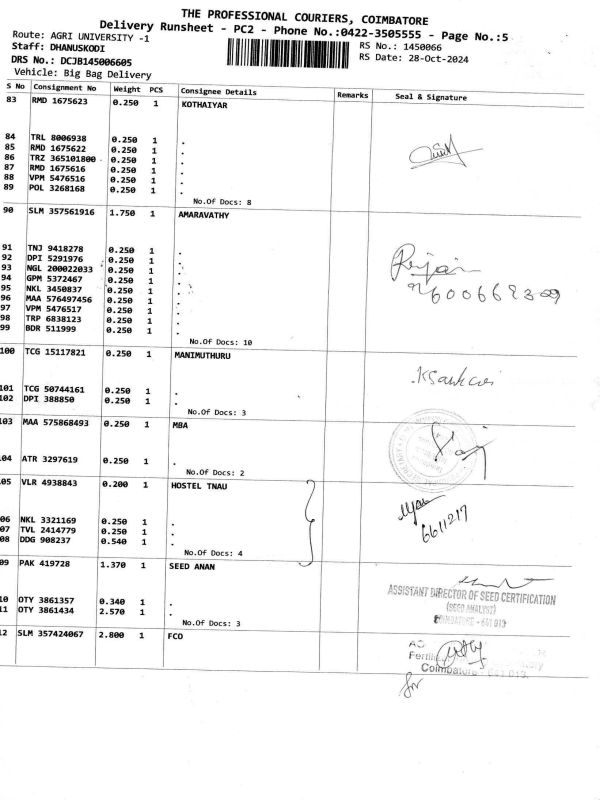 THE PROFESSIONAL COURIERS, COIMBATORE
Delivery Runsheet - PC2 - Phone No.:0422-3505555 - Page No.:5
Route: AGRI UNIVERSITY -1
RS No.: 1450066
Staff: DHANUSKODI
RS Date: 28-Oct-2024
DRS No.: DCJB145006605
Vehicle: Big Bag Delivery
S No Consignment No Weight PCS Consignee Details Remarks Seal & Signature
83 RMD 1675623 0.250 1 KOTHAIYAR
84 TRL 8006938 0.250 1 .
85 RMD 1675622 0.250 1 .
86 TRZ 365101800 0.250 1 .
87 RMD 1675616 0.250 1 .
88 VPM 5476516 0.250 1 .
89 POL 3268168 0.250 1 .
No.Of Docs: 8
90 SLM 357561916 1.750 1 AMARAVATHY
91 TNJ 9418278 0.250 1 .
92 DPI 5291976 0.250 1 .
93 NGL 200022033 0.250 1 .
94 GPM 5372467 0.250 1 .
95 NKL 3450837 0.250 1 .
96 MAA 576497456 0.250 1 .
97 VPM 5476517 0.250 1 .
98 TRP 6838123 0.250 1 .
99 BDR 511999 0.250 1 .
No.Of Docs: 10
100 TCG 15117821 0.250 1 MANIMUTHURU
101 TCG 50744161 0.250 1 .
102 DPI 388850 0.250 1 .
No.Of Docs: 3
103 MAA 575868493 0.250 1 MBA
04 ATR 3297619 0.250 1 .
No.Of Docs: 2
05 VLR 4938843 0.200 1 HOSTEL TNAU
6611217
06 NKL 3321169 0.250 1 .
07 TVL 2414779 0.250 1 .
08 DDG 908237 0.540 1 .
No.Of Docs: 4
09 PAK 419728 1.370 1 SEED ANAN
ASSISTANT DIRECTOR OF SEED CERTIFICATION
(SEED ANALYST)
COIMBATORE - 641 013
10 OTY 3861357 0.340 1 .
11 OTY 3861434 2.570 1 .
No.Of Docs: 3
12 SLM 357424067 2.800 1 FCO
for